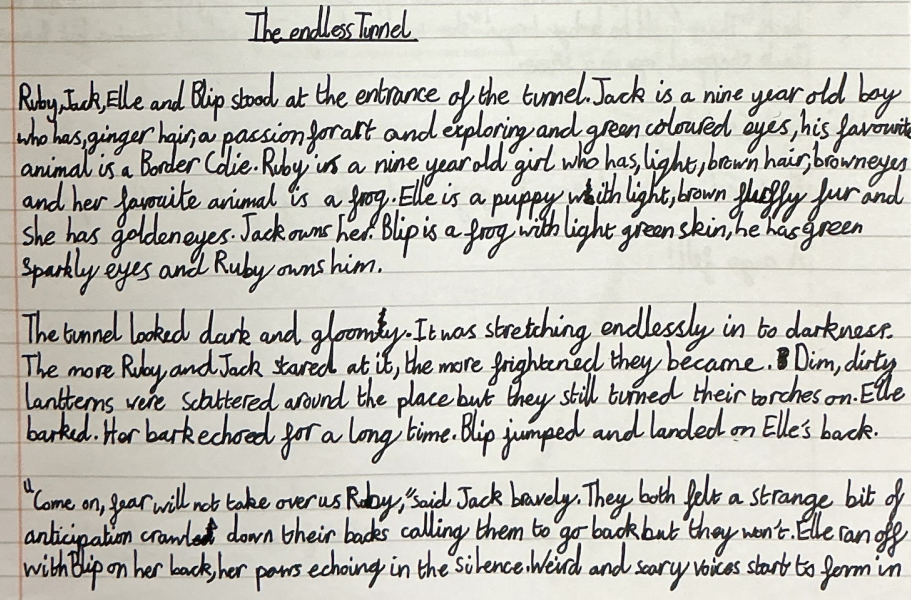 The endless Tunnel
Ruby, Jack, Elle and Blip stood at the entrance of the tunnel. Jack is a nine year old boy
who has, ginger hair, a passion for art and exploring and green coloured eyes, his favourite
animal is a Border Colie. Ruby is a nine year old girl who has, light, brown hair, brown eyes
and her favouite animal is a frog. Elle is a puppy with light, brown fluffy fur and
she has golden eyes. Jack owns her. Blip is a frog with light green skin, he has green
sparkly eyes and Ruby owns him.
The tunnel looked dark and gloomy. It was stretching endlessly in to darkness.
The more Ruby and Jack stared at it, the more frightened they became. Dim, dirty
lantterns were scattered around the place but they still turned their torches on. Elle
barked. Her bark echoed for a long time. Blip jumped and landed on Elle's back.
"Come on, fear will not take over us Ruby," said Jack bravely. They both felt a strange bit of
anticipation crawl down their backs calling them to go back but they won't. Elle ran off
with Blip on her back, her paws echoing in the silence. Weird and scary voices start to form in